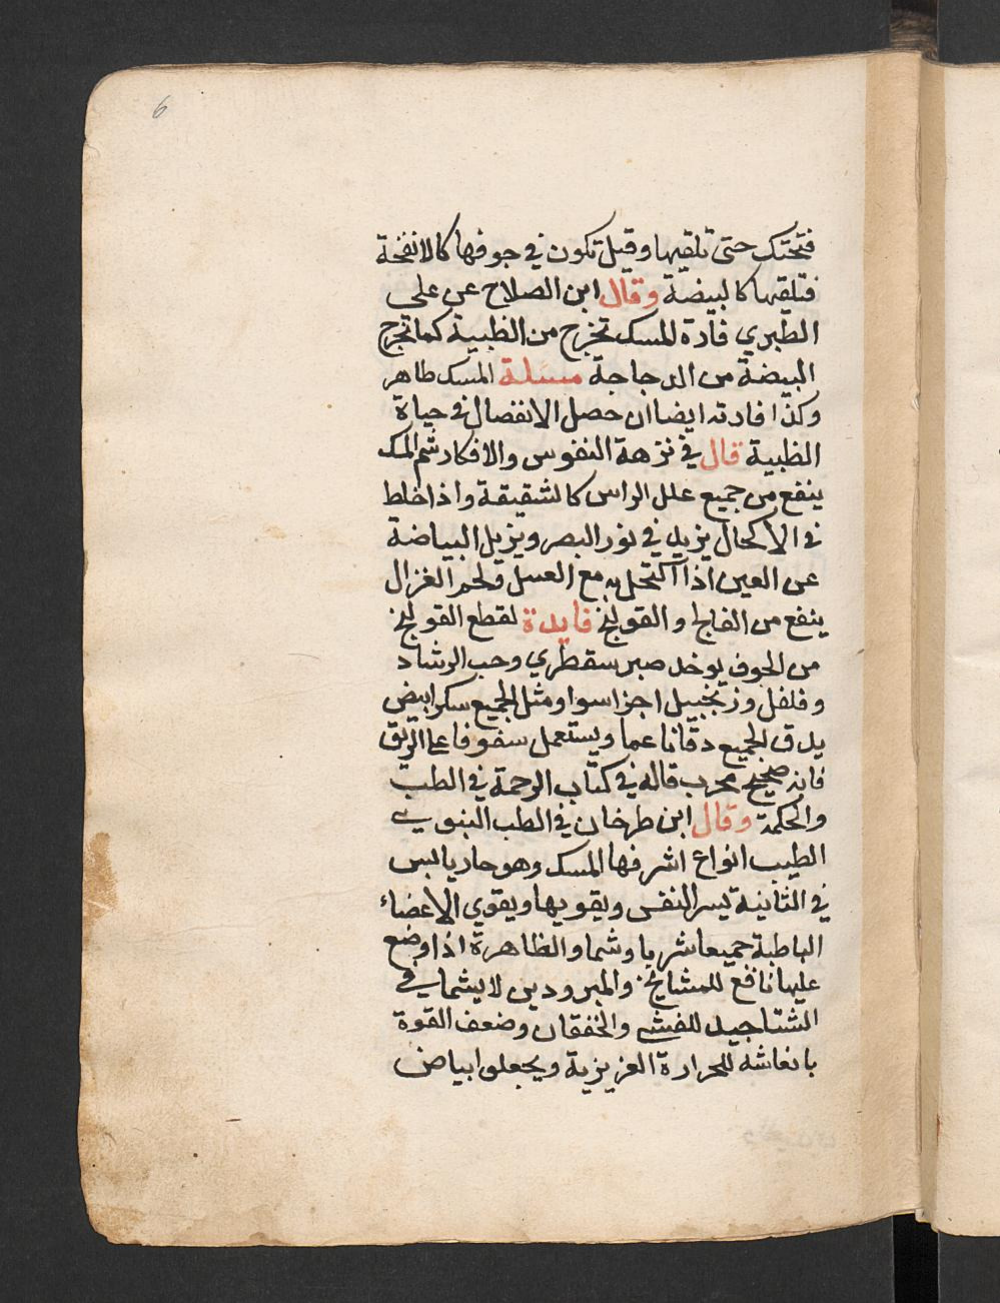 6
فتحتك حتى تلقيها وقيل تكون في جوفها كالانفحة
فتلقيها كالبيضة وقال ابن الصلاح عن علي
الطبري فارة المسك تخرج من الظبية كما تخرج
البيضة من الدجاجة مسئلة المسك طاهر
وكذا فارته ايضا ان حصل الانفصال في حياة
الظبية قال في نزهة النفوس والافكار شم المسك
ينفع من جميع علل الراس كالشقيقة واذا خلط
في الاكحال يزيد في نور البصر ويزيل البياضة
عن العين اذا اكتحل به مع العسل ولحم الغزال
ينفع من الفالج والقولنج فايدة لقطع القولنج
من الجوف يوخد صبر سقطري وحب الرشاد
وفلفل وزنجبيل اجزا سوا ومثل الجميع سكر ابيض
يدق الجميع دقا ناعما ويستعمل سفوفا على الريق
فانه صحيح مجرب قاله في كتاب الرحمة في الطب
والحكمة وقال ابن طرخان في الطب النبوي
الطيب انواع اشرفها المسك وهو حار يابس
في الثانية يسر النفس ويقويها ويقوي الاعضاء
الباطنة جميعا شربا وشما والظاهرة اذا وضع
عليها نافع للمشايخ والمبرودين لا يشما في
الشتا جيد للغشي والخفقان وضعف القوة
بانعاشه للحرارة الغزيزية ويجعلوا بياض